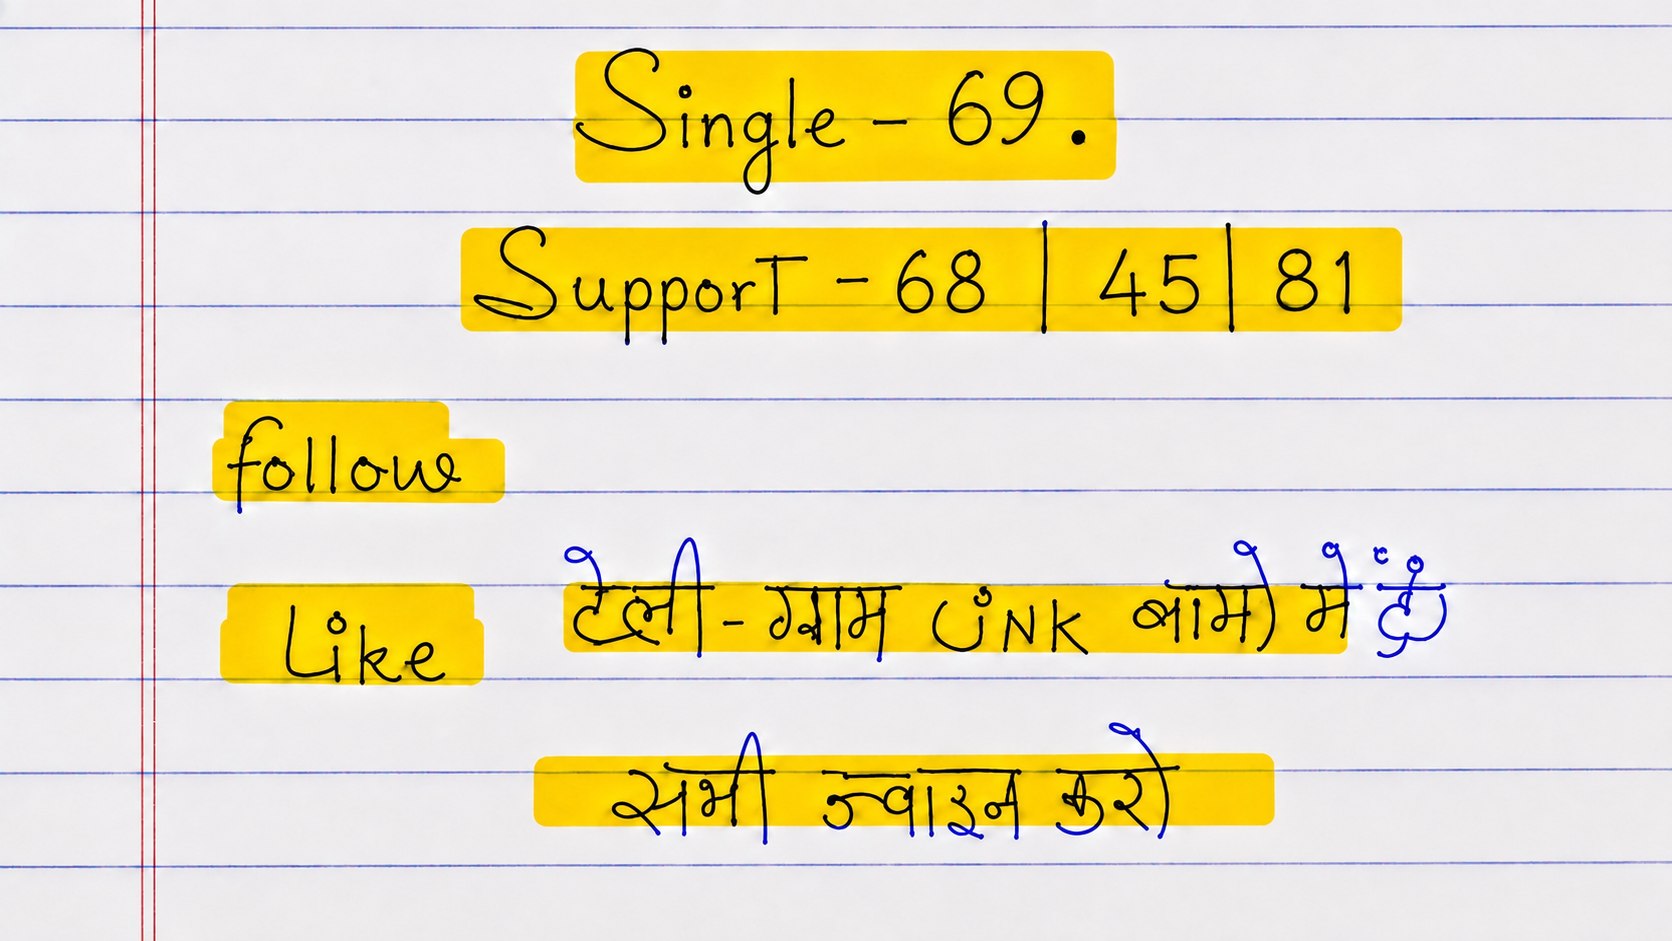 Single - 69.
Support - 68 | 45 | 81
follow
Like
टेली - ग्राम LiNK बामो में है
सभी ज्वाइन करो